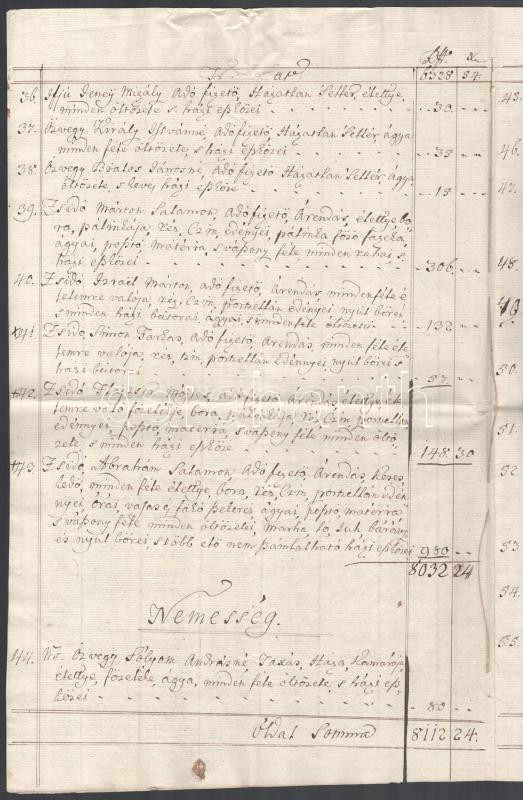 Rft. x.
Lat. 6328 54.
36. Ifjú Jeney Mihály Adó fizető, Házatlan Sellér, élettye,
minden öltözete s. házi eszközei - - - 30 - -
37. Özvegy Király Istvánné, Adó fizető, Házatlan Sellér ágya
minden féle öltözete, s házi eszközei - - - 33 - -
38. Özvegy Jánosné, Adó fizető Házatlan Sellér, ágya
öltözete, s keves házi eszköze - - - 18 - -
39. Zsidó Márton Salamon, Adó fizető, Árendás, élettye bo-
ra, pálinkája, réz, Czin, edényei, pálinka főző fazeka,
ágyai, posztó, matéria, s vászony féle minden ruhái s.
házi eszközei - - - 306. - -
40. Zsidó, Izraél Márton, adó fizető, Árendás mindenféle é-
telemre valója, réz, Czin, portzellán edényei nyúl bőrei
s minden házi bútorai, ágyai, s mindenféle öltözetei - - 132 - -
41. Zsidó, Simon Farkas, Adó fizető, Árendás, minden féle éle-
lemre valója, réz, tzin, portzellán edénnyei nyúl bőrei s
házi bútori - - - 37 - -
42. Zsidó Márton, adó fizető Árendás, élettye éle-
lemre való főzeléke, bora, pálinkája, réz, Czin, portzellán
edénnyei, posztó, matéria, s vászony féle minden öltö-
zete s minden házi eszköze - - - 148 30
43. Zsidó, Abrahám Salamon, Adó fizető, Árendás, Keres-
kedő, minden féle élettye, bora, réz, Czin, portzellán edén-
nyei, Órái, ágyai, posztó, matéria
s vászony féle minden öltözetei, Marha ló, Juh bárány
és nyúl bőrei, s több elő nem számlálható házi eszközei 980 - -
8032 24
Nemesség.
44. Ns. Özvegy Sólyom Andrásné Taxás, Háza, Kamarája,
élettye, főzeléke, ágya, minden féle öltözete, s házi esz-
közei - - - 80 - -
Óldal Somma 8112 24.
43.
46.
47.
48.
50.
51.
52
53
54.
55.
darabanth